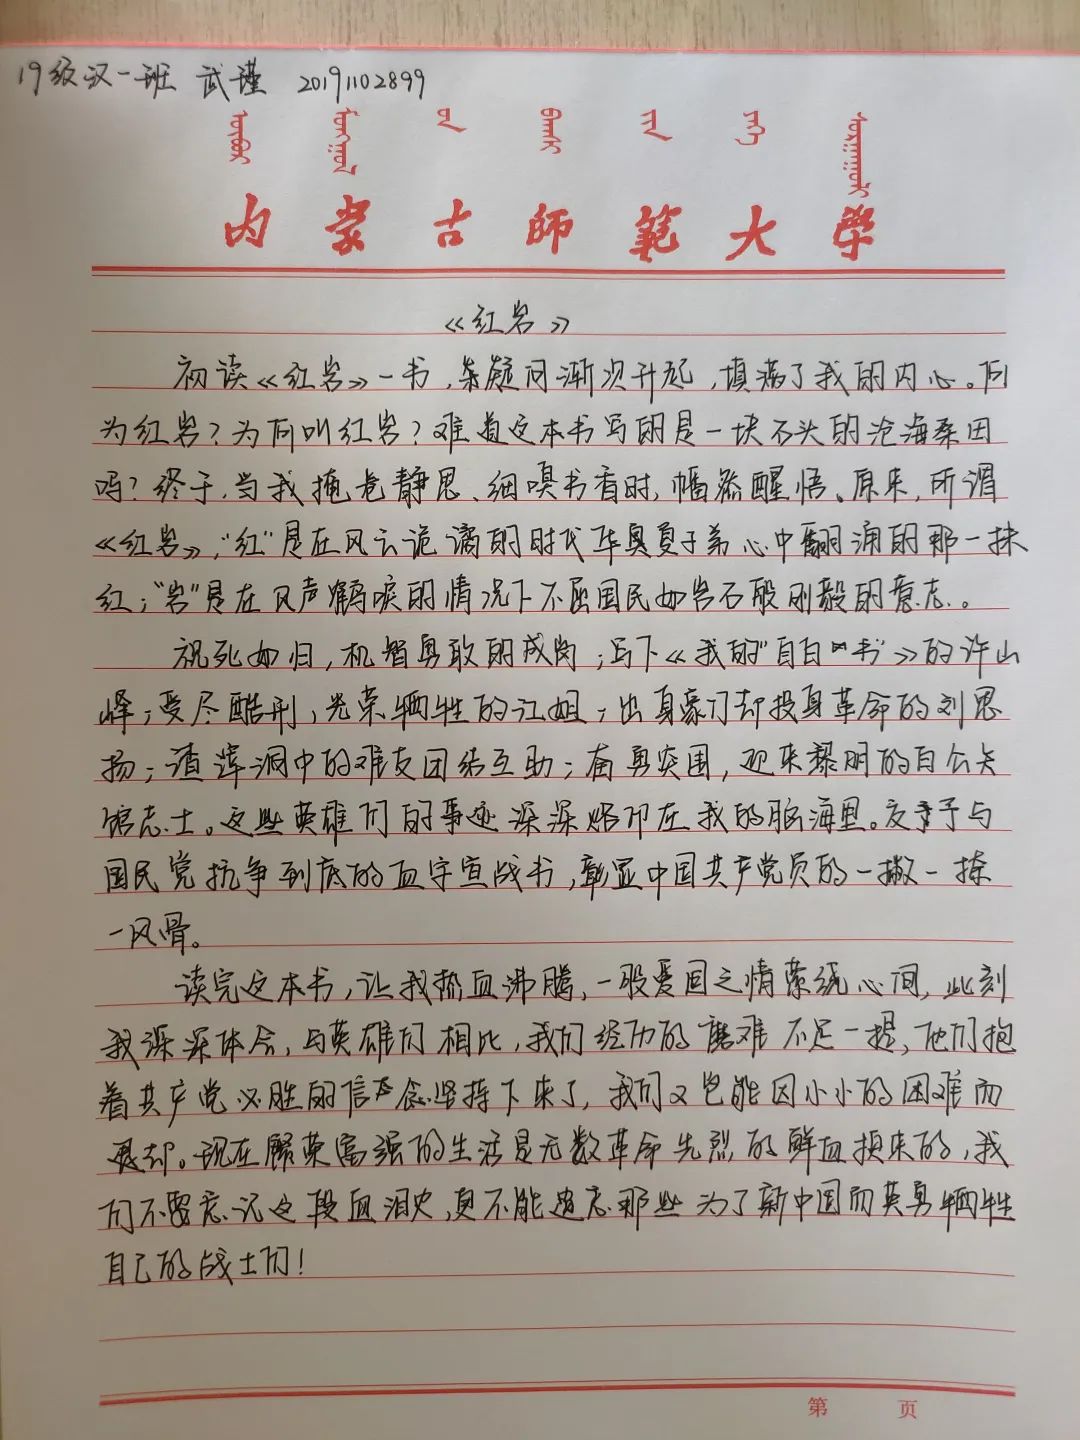 19级汉一班 武瑾 20191102899
内蒙古师范大学
《红岩》
初读《红岩》一书,条疑问渐次升起,填满了我的内心。何
为红岩?为何叫红岩?难道这本书写的是一块石头的沧海桑田
吗?终于,当我掩卷静思、细嗅书香时,幡然醒悟、原来,所谓
《红岩》,“红”是在风云诡谲的时代华夏子弟心中翻涌的那一抹
红;“岩”是在风声鹤唳的情况下不屈国民如岩石般刚毅的意志。
视死如归,机智勇敢的成岗;写下《我的“自白”书》的许山
峰;受尽酷刑,光荣牺牲的江姐;出身豪门却投身革命的刘思
扬;渣滓洞中的难友团结互助;奋勇突围,迎来黎明的白公关
馆志士。这些英雄们的事迹深深烙印在我的脑海里。友手予与
国民党抗争到底的血字宣战书,彰显中国共产党员的一撇一捺
一风骨。
读完这本书,让我热血沸腾,一股爱国之情萦绕心间,此刻
我深深体会,与英雄们相比,我们经历的磨难不足一提,他们抱
着共产党必胜的信念坚持下来了,我们又岂能因小小的困难而
退却。现在繁荣富强的生活是无数革命先烈的鲜血换来的,我
们不要忘记这段血泪史,更不能遗忘那些为了新中国而英勇牺牲
自己的战士们!
第 页